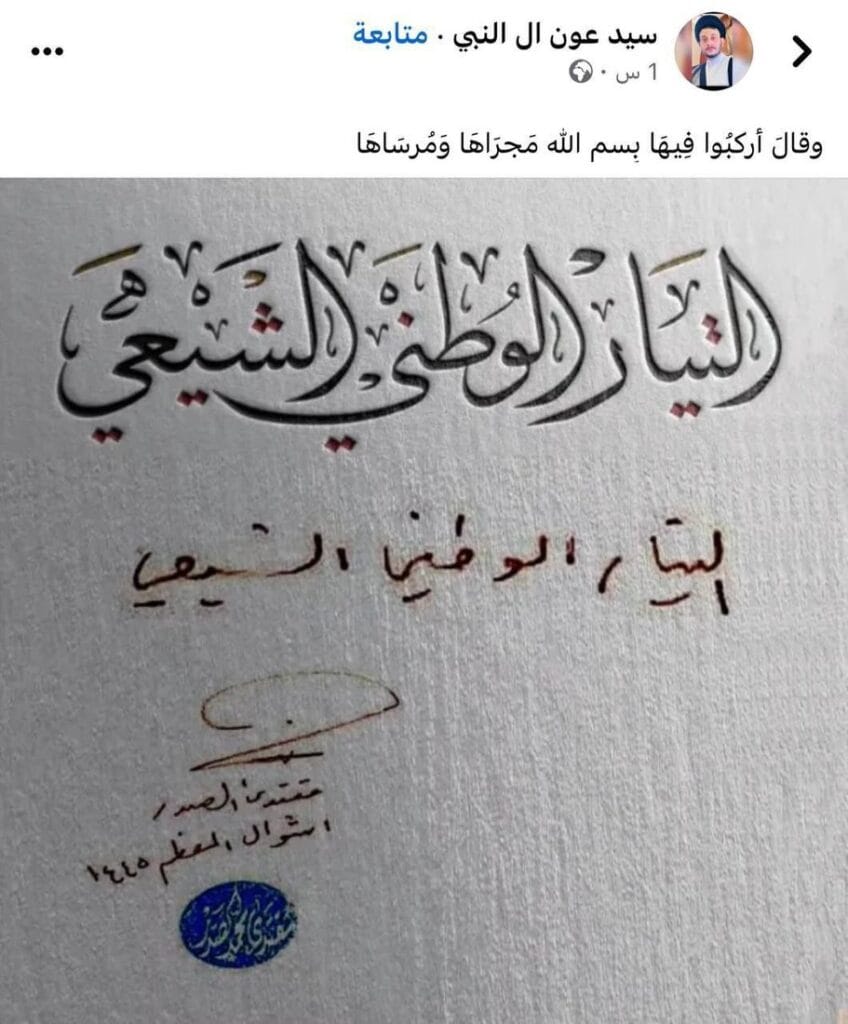 سيد عون ال النبي · متابعة
1 س ·
وقالَ أركبُوا فِيهَا بِسم الله مَجرَاهَا وَمُرسَاهَا
التيار الوطني الشيعي
التيار الوطني الشيعي
مقتدى الصدر
١ شوال المعظم ١٤٤٥
مقتدى محمد الصدر